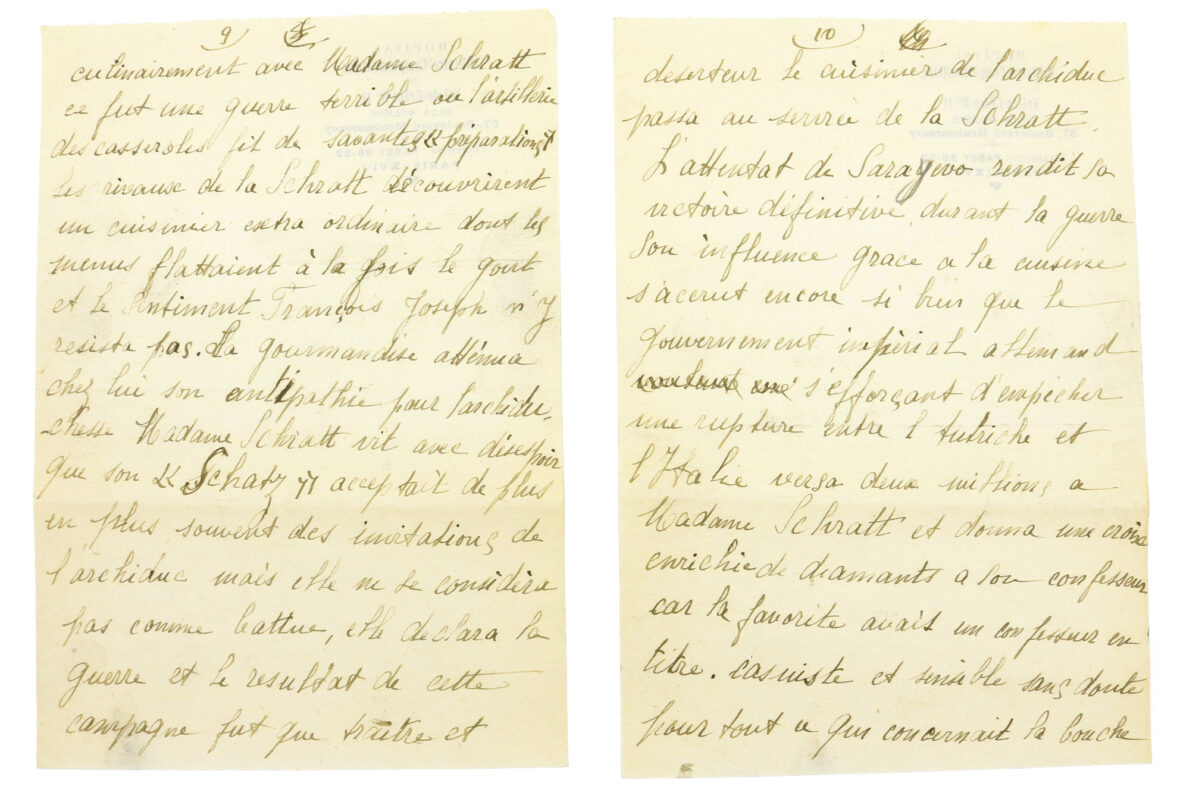 9
culinairement avec Madame Schratt
ce fut une guerre terrible ou l'artillerie
des casseroles fit de savantes « préparations »
les rivause de la Schratt découvrirent
un cuisinier extra ordinaire dont les
menus flattaient à la fois le gout
et le Sentiment François Joseph n'y
resista pas. La gourmandise atténua
chez lui son antipathie pour l'archidu-
-chesse Madame Schratt vit avec désespoir
que son « Schatz » acceptait de plus
en plus souvent des invitations de
l'archiduc mais elle ne se considéra
pas comme battue, elle declara la
guerre et le resultat de cette
campagne fut que traître et
10
deserteur le cuisinier de l'archiduc
passa au service de la Schratt.
L'attentat de Sarayevo rendit sa
victoire définitive, durant la guerre
son influence grace a la cuisine
s'accrut encore si bien que le
gouvernement impérial allemand
s'efforçant d'empêcher
une rupture entre l'Autriche et
l'Italie versa deux millions a
Madame Schratt et donna une croix
enrichie de diamants a son confesseur
car la favorite avait un confesseur en
titre. casuiste et sensible sans doute
pour tout ce qui concernait la bouche